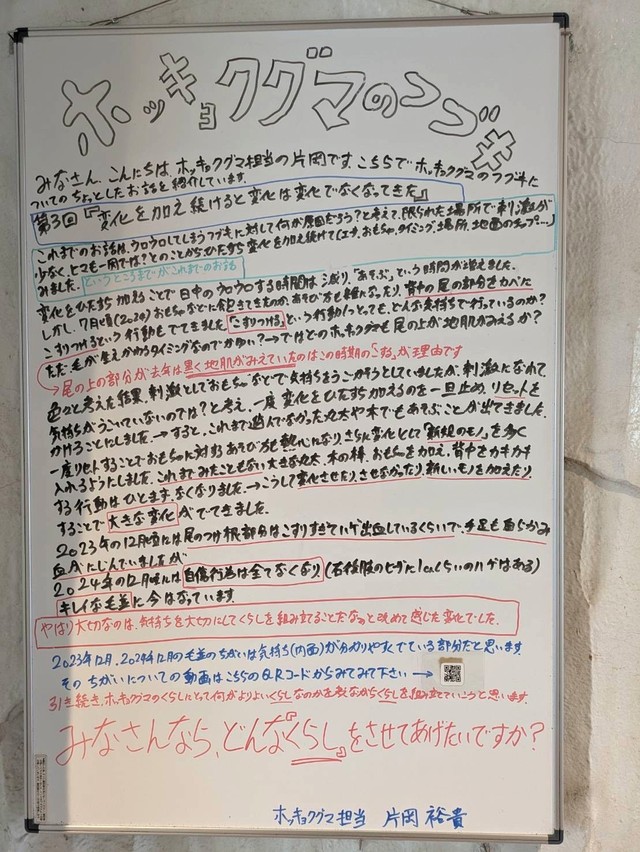 ホッキョクグマのフブキ
みなさん、こんにちは、ホッキョクグマ担当の片岡です。こちらでホッキョクグマのフブキに
ついてのちょっとしたお話を紹介しています。
第3回『変化を加え続けると変化は変化でなくなってきた』
これまでのお話は、ウロウロしてしまうフブキに対して何が原因だろう?と考えて、限られた場所で刺激が
少なく、ヒマも一因では?とのことからひたすら変化を加え続けて(エサ、おもちゃ、タイミング、場所、地面のチップ…)
みました。というところまでがこれまでのお話
変化をひたすら加えることで日中のウロウロする時間は減り、「あそぶ」という時間が増えました。
しかし、7月頃(2023)おもちゃなどに飽きてきたのか、あそび方も雑になったり、背中の尾の部分をカベに
こすりつけるという行動もでてきました。「こすりつける」という行動1つとっても、どんな気持ちで行っているのか?
ただ毛が生えかわるタイミングなのでかゆい?→ではどのホッキョクグマも尾の上が地肌がみえるか?
→尾の上の部分が去年は黒く地肌がみえていたのはこの時期の「こする」が理由です
色々と考えた結果、刺激としておもちゃなどで気持ちをうごかそうとしていましたが、刺激になれて、
気持ちがうごいていないのでは?と考え、一度変化をひたすら加えるのを一旦止め、リセットを
かけることにしました。→すると、これまで遊んでなかった丸太や木でもあそぶことが出てきました。
一度リセットすることでおもちゃに対するあそび方も熱心になり、さらに変化として「新規のモノ」を多く
入れるようにしました。これまでみたこともない大きな丸太、木の棒、おもちゃを加え、背中をカキカキ
する行動はひとまずなくなりました。→こうして変化させたり、させなかったり、新しいモノを加えたり
することで大きな変化がでてきました。
2023年の12月頃には尾のつけ根部分はこすりすぎていて出血しているくらいで、手足も自らかみ
血がにじんでいましたが
2024年の12月頃には自傷行為は全てなくなり(右後肢のヒザに1cmくらいのハゲはある)
キレイな毛並に今はなっています。
やはり大切なのは、気持ちを大切にしてくらしを組み立てることだなぁと改めて感じた変化でした。
2023年12月、2024年12月の毛並のちがいは気持ち(内面)が分かりやすくでている部分だと思います。
そのちがいについての動画はこちらのQRコードからみてみて下さい→
引き続き、ホッキョクグマのくらしにとって何がよりよいくらしなのかを考えながらくらしを組み立てていこうと思います。
みなさんなら、どんな『くらし』をさせてあげたいですか?
ホッキョクグマ担当 片岡 裕貴